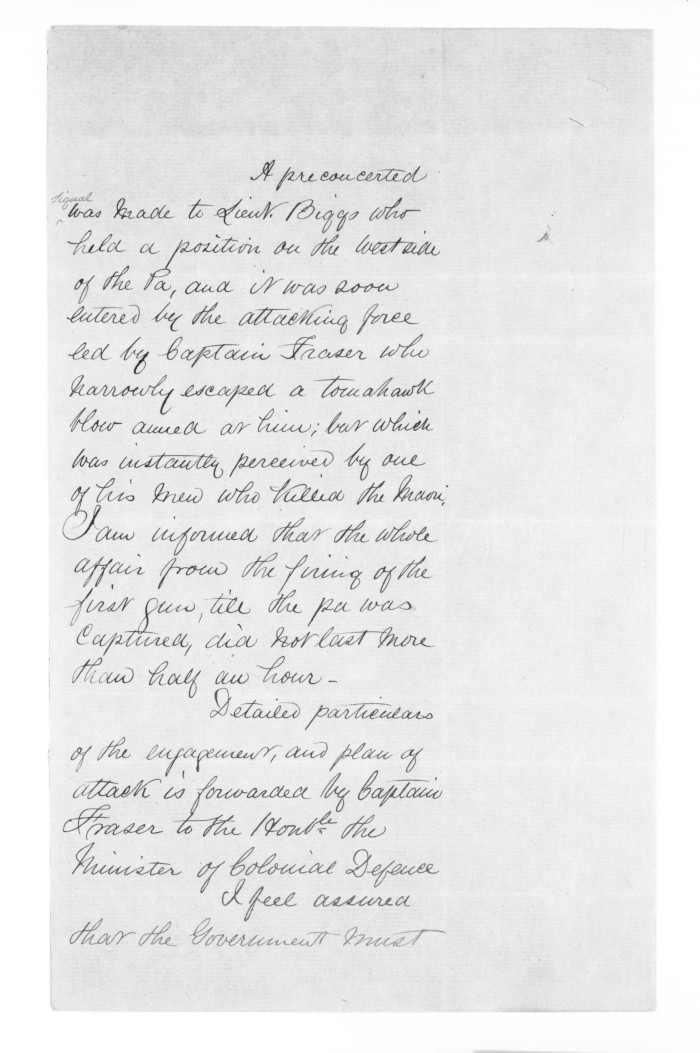 A preconcerted
signal
was made to Lieut. Biggs who
held a position on the west side
of the Pa, and it was soon
entered by the attacking force
led by Captain Fraser who
narrowly escaped a tomahawk
blow aimed at him; but which
was instantly perceived by one
of his men who killed the Maori.
I am informed that the whole
affair from the firing of the
first gun, till the pa was
Captured, did not last more
than half an hour -
Detailed particulars
of the engagement, and plan of
attack is forwarded by Captain
Fraser to the Honble the
Minister of Colonial Defence
I feel assured
that the Government must